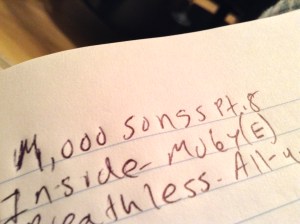 M,000 songs pt.8
Inside-Moby(E)
Breathless-All-4-